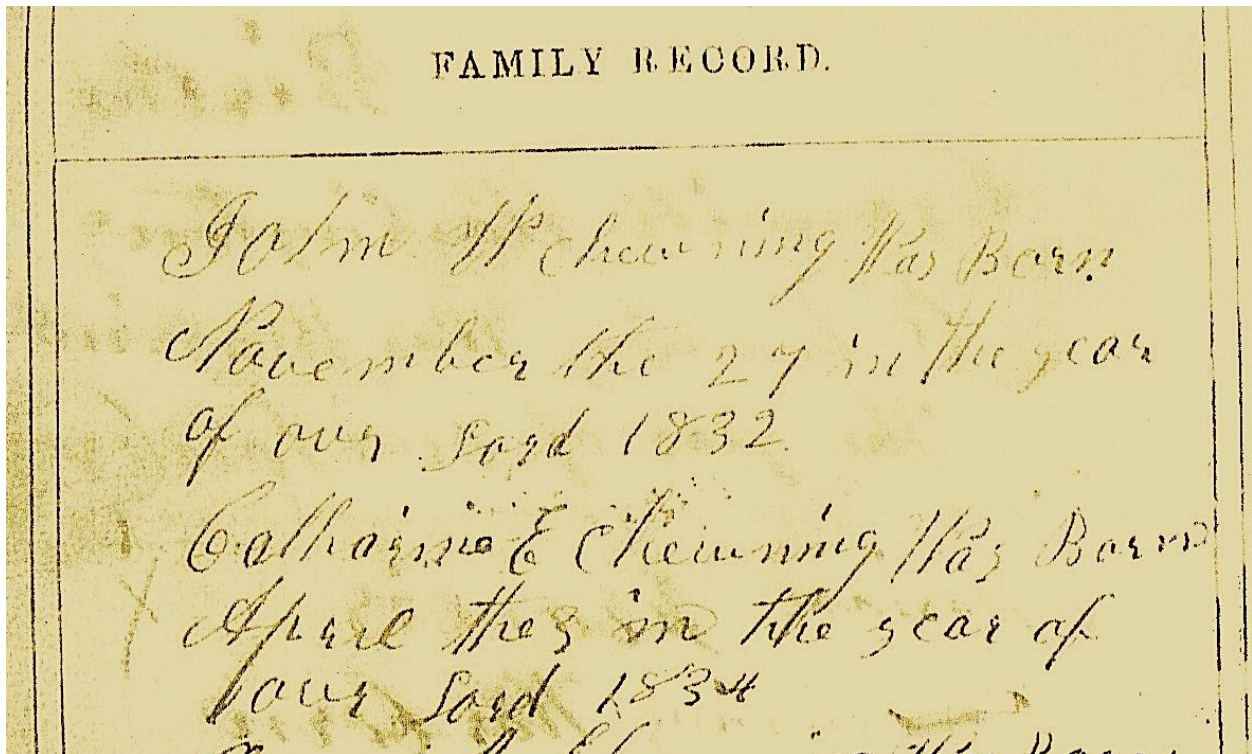 FAMILY RECORD.
John W Chewning Was Born
November the 27 in the year
of our Lord 1832
Catharine E Chewning Was Born
April the 3 in the year of
our Lord 1834
Chewning Was Born